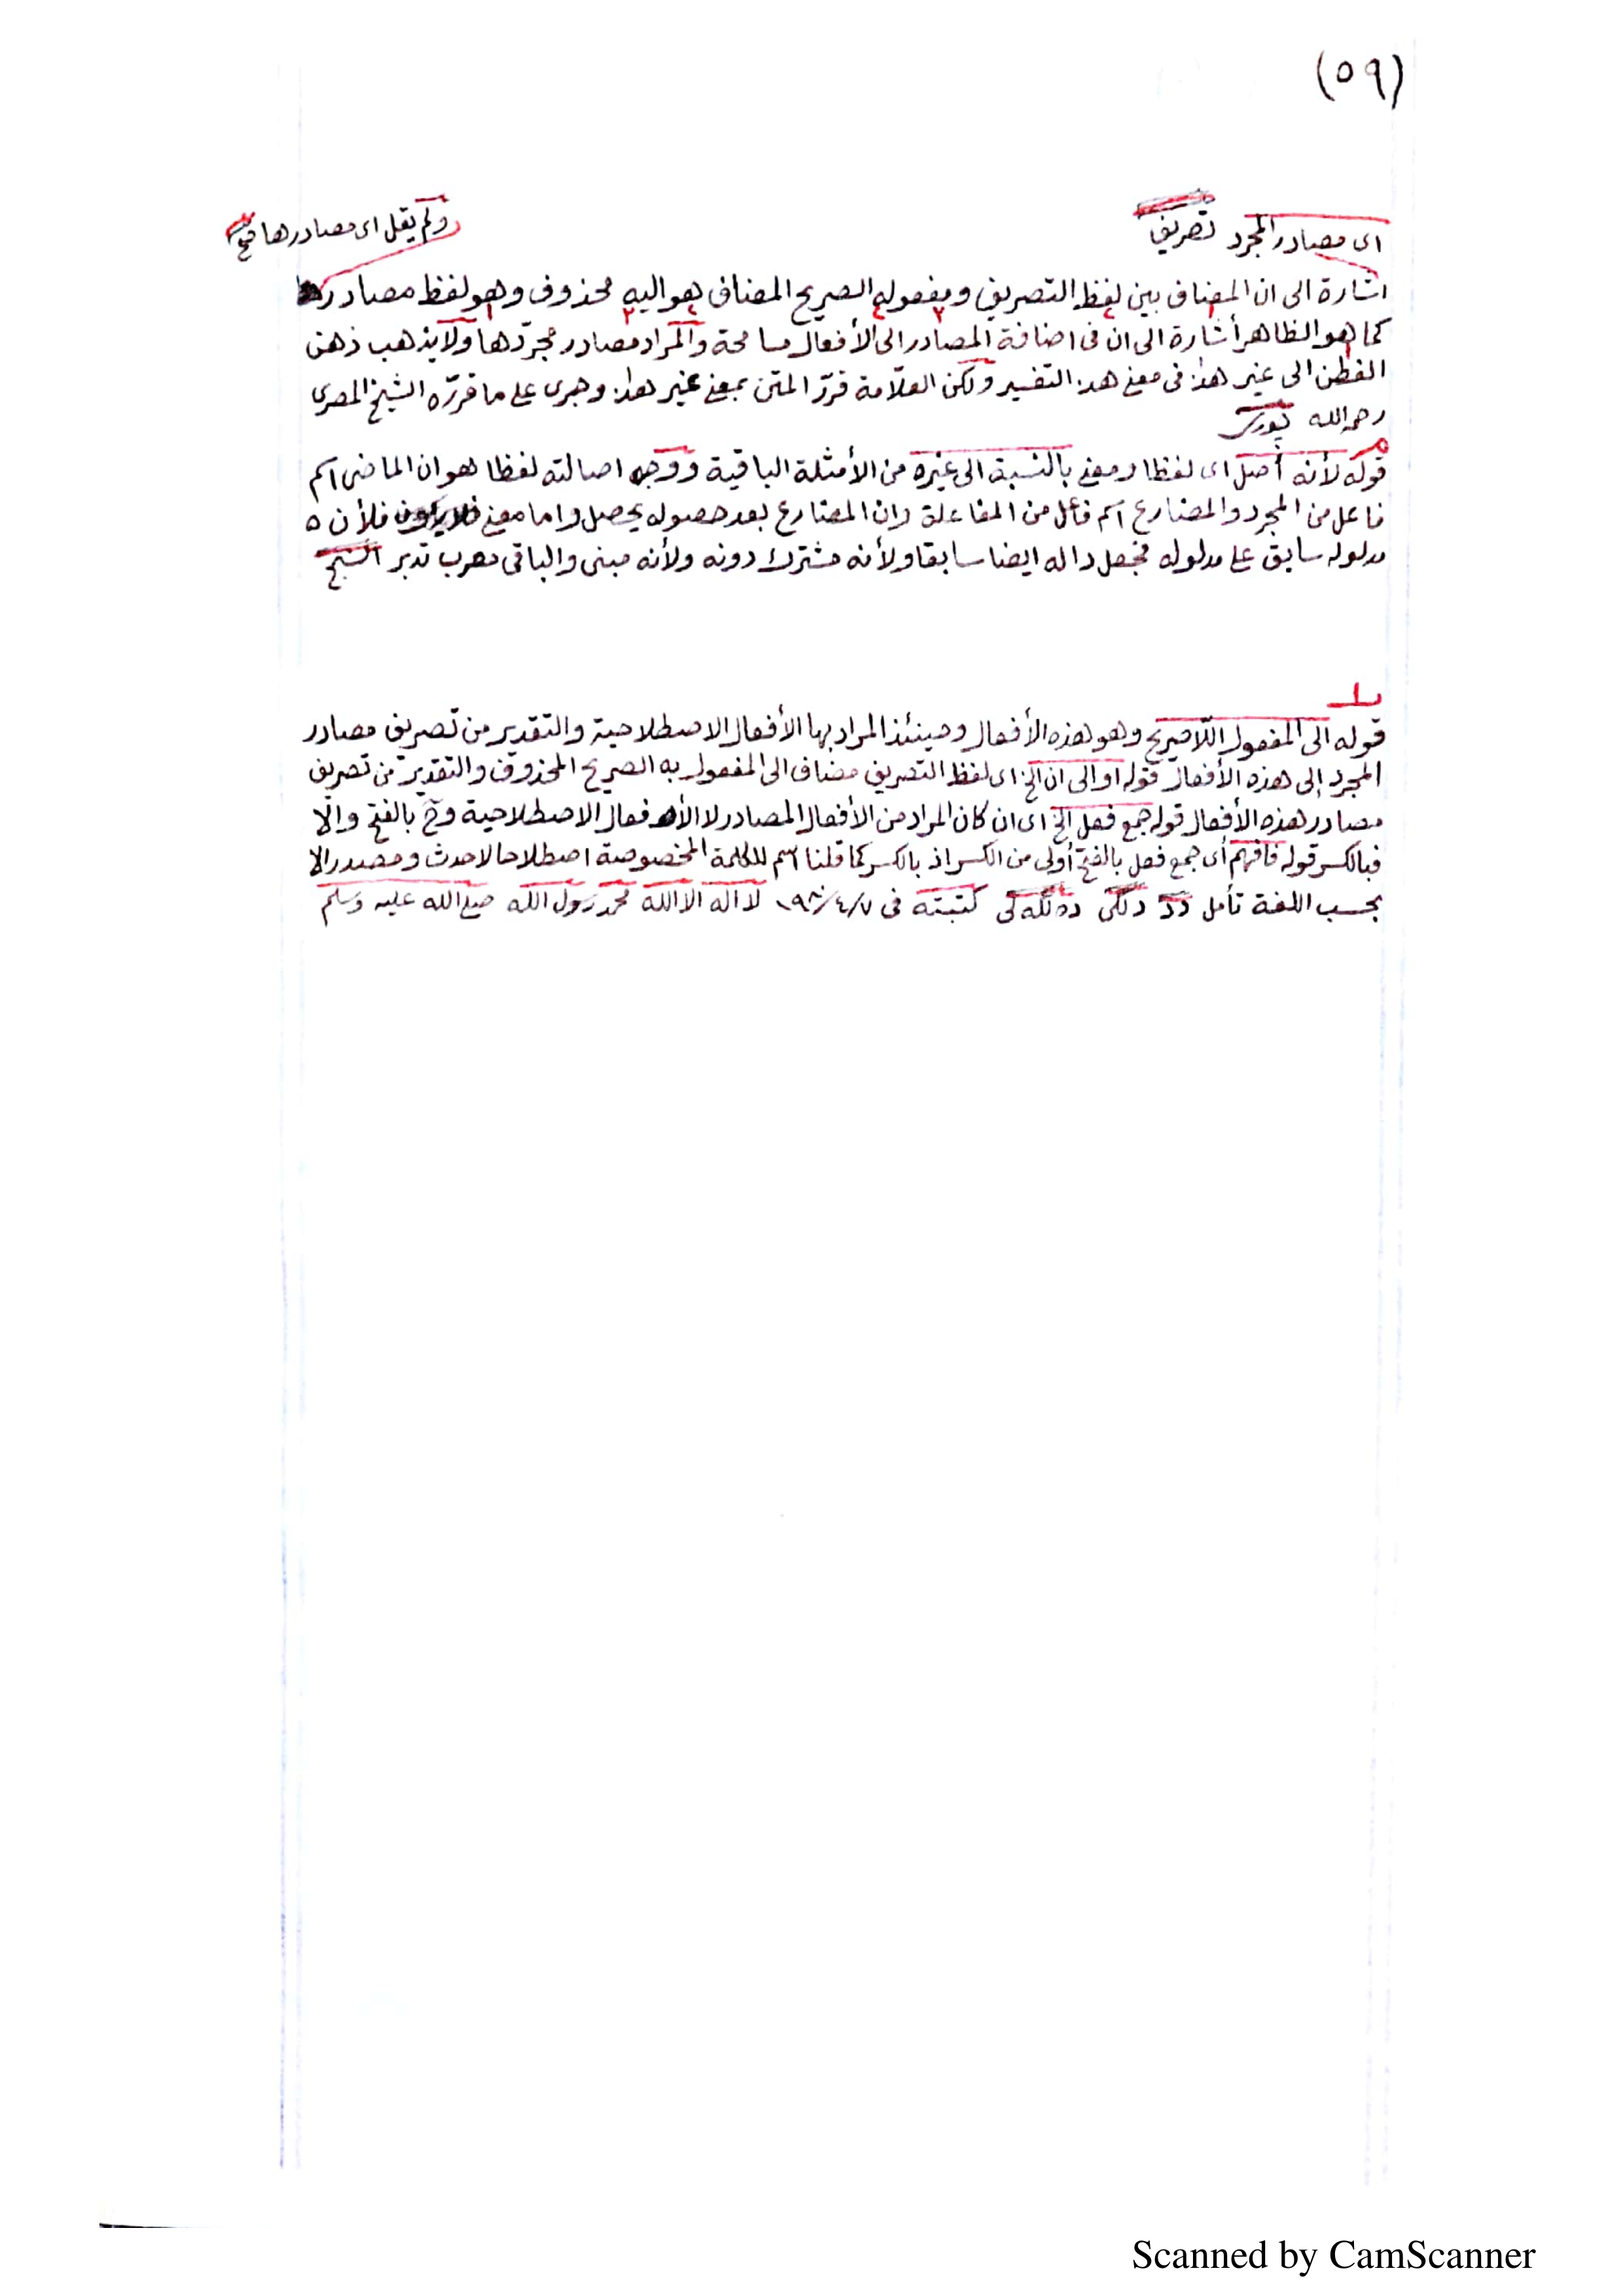 (٥٩)
اى مصادر المجرد تصريف
ولم يقل اى مصادرها
اشارة الى ان المضاف بين لفظ التصريف ومفعوله الصريح المضاف هو اليه محذوف وهو لفظ مصادر
كما هو الظاهر أشارة الى ان فى اضافة المصادر الى الأفعال مسامحة والمراد مصادر مجردها ولا يذهب ذهن
الفطن الى غير هذا فى معنى هذا التفسير ولكن العلّامة قرّر المتن بمعنى غير هذا وجرى على ما قرّره الشيخ المصرى
رحمه الله
قوله لأنه أصل اى لفظا ومعنى بالنسبة الى غيره من الأمثلة الباقية ووجه اصالته لفظا هو ان الماضى اسم
فاعل من المجرد والمضارع اسم فاعل من المفاعلة وان المضارع بعد حصوله يحصل واما معنى فلأن
مدلوله سابق على مدلوله فجعل داله ايضا سابقا ولأنه مشترك دونه ولأنه مبنى والباقى معرب تدبر الشيخ
قوله الى المفعول اللّاصريح وهو هذه الأفعال وحينئذ المراد بها الأفعال الاصطلاحية والتقدير من تصريف مصادر
المجرد إلى هذه الأفعال قوله او الى ان الخ اى لفظ التصريف مضاف الى المفعول به الصريح المحذوف والتقدير من تصريف
مصادر هذه الأفعال قوله جمع فعل الخ اى ان كان المراد من الأفعال المصادر لا الأفعال الاصطلاحية وح بالفتح والّا
فبالكسر قوله فافهم أى جمع فعل بالفتح أولى من الكسر اذ بالكسر كما قلنا اسم للكلمة المخصوصة اصطلاحا لاحدث ومصدر الا
بحسب اللغة تأمل دد كتبته فى ١٩٨٠/٤/٧ لا اله الا الله محمد رسول الله صلى الله عليه وسلم
Scanned by CamScanner